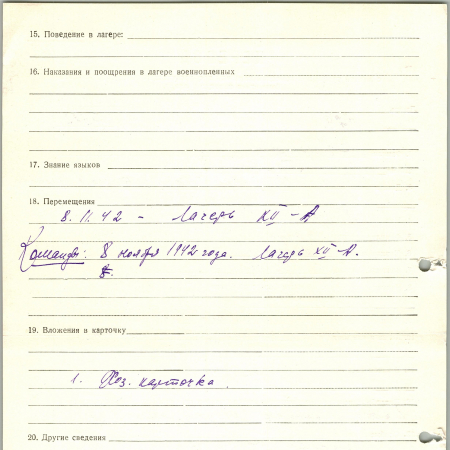 15. Поведение в лагере:
16. Наказания и поощрения в лагере военнопленных
17. Знание языков
18. Перемещения
8. 11. 42 – Лагерь XII – А
Команды: 8 ноября 1942 года. Лагерь XII – А.
8.
19. Вложения в карточку
1. Хоз. карточка.
20. Другие сведения